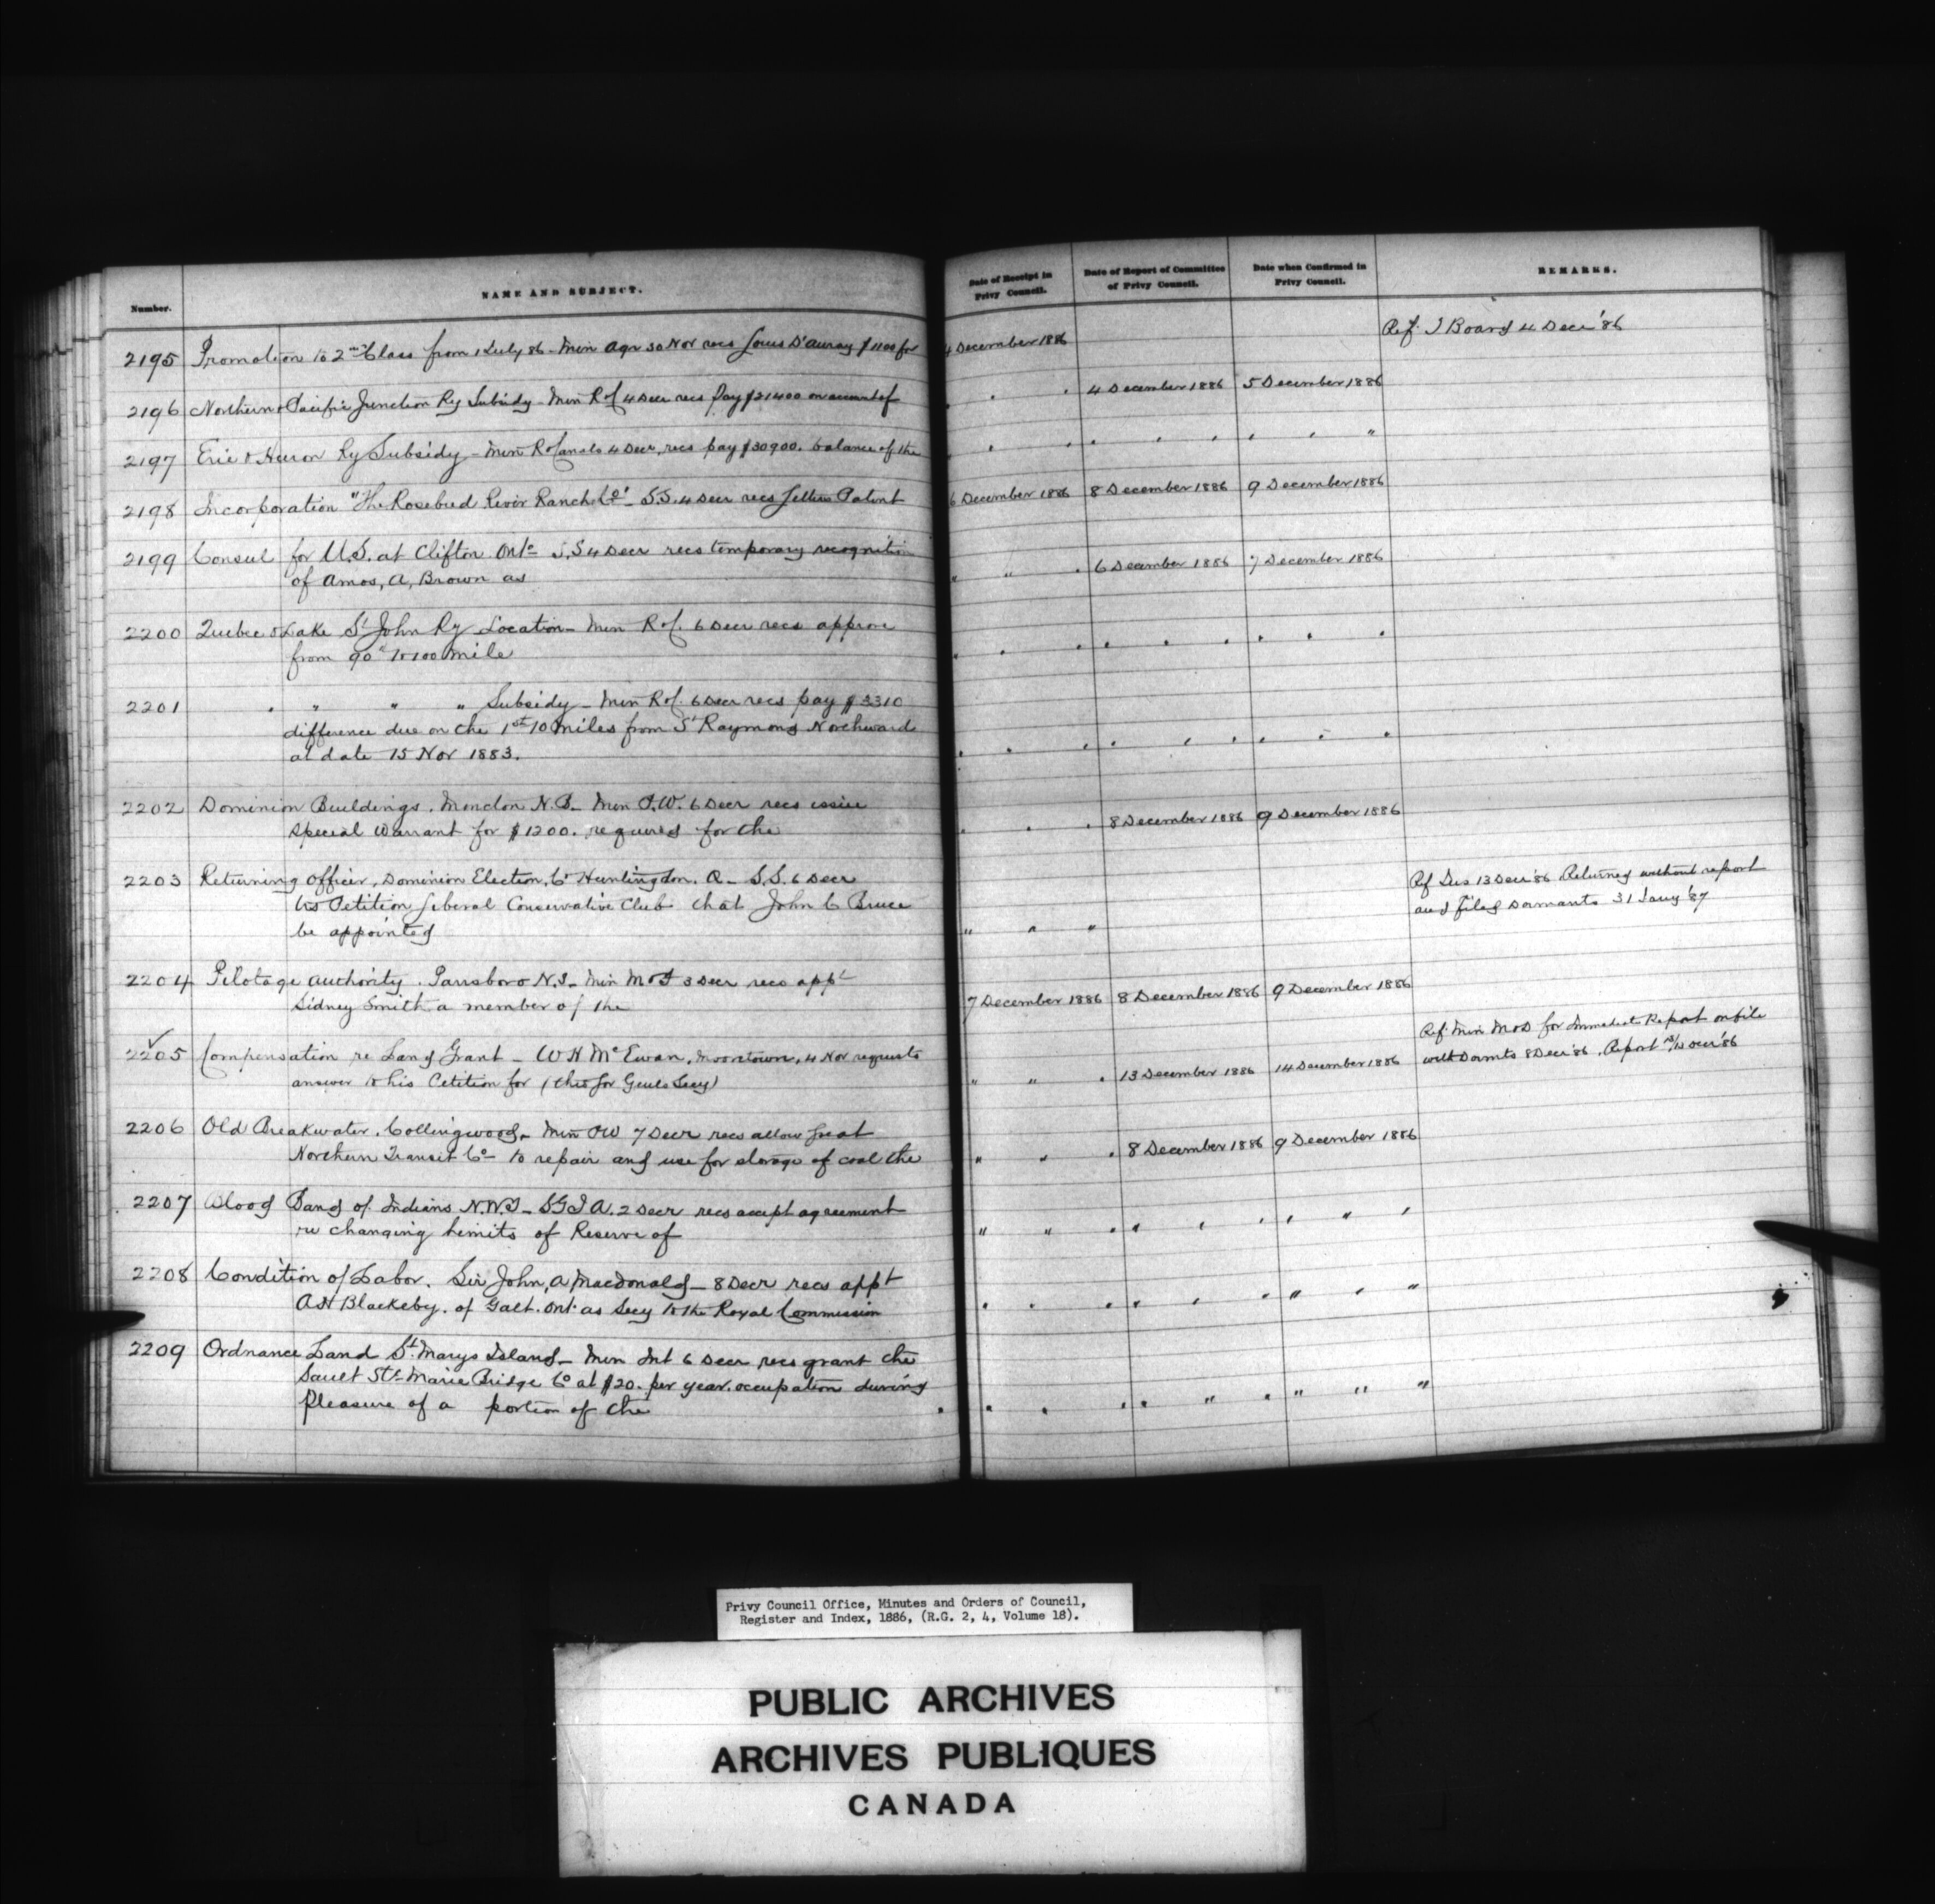 Number. NAME AND SUBJECT. Date of Receipt in Privy Council. Date of Report of Committee of Privy Council. Date when Confirmed in Privy Council. REMARKS.
2195 Promotion to 2nd Class from 1 July 86 - Min Agr 30 Nov recs Louis D'auray $1100 for 4 December 1886 Ref. T Board 4 Decr '86
2196 Northern & Pacific Junction Ry Subsidy - Min R of C 4 Decr recs pay $21400 on account of " " " 4 December 1886 5 December 1886
2197 Erie & Huron Ry Subsidy - Min R of Canals 4 Decr. recs pay $30900. balance of the " " " " " " " " "
2198 Incorporation "The Rosebud River Ranch Co" - S.S. 4 Decr recs Letters Patent 6 December 1886 8 December 1886 9 December 1886
2199 Consul for U.S. at Clifton Onto S.S 4 Decr recs temporary recognition
of Amos, A, Brown as " " " 6 December 1886 7 December 1886
2200 Quebec & Lake St John Ry Location - Min R of. 6 Decr recs approve
from 90th to 100 mile " " " " " " " " "
2201 " " " " Subsidy - Min R of. 6 Decr recs pay $3310
difference due on the 1st 10 miles from St Raymond Northward
at date 15 Nov 1883. " " " " " " " " "
2202 Dominion Buildings. Moncton N.B. - Min P.W. 6 Decr recs issue
special warrant for $1200. required for the " " " 8 December 1886 9 December 1886
2203 Returning Officer, Dominion Election, Co Huntingdon. Q - S.S. 6 Decr Ref Jus 13 Decr '86 Returned without report
trs Petition Liberal Conservative Club that John C Bruce and filed Dormants 31 Jany '87
be appointed " " "
2204 Pilotage authority. Parrsboro N.S - Min M & F 3 Decr recs appt
Sidney Smith a member of the 7 December 1886 8 December 1886 9 December 1886
2205 Compensation re Land Grant - W H McEwan, Mooretown, 4 Nov requests Ref. Min M & D for Immediate Report on file
answer to his Petition for (thro Gov Genls Secy) " " " 13 December 1886 14 December 1886 with Dormts 8 Decr '86. Report Decr '86
2206 Old Breakwater. Collingwood - Min PW 7 Decr recs allow Great
Northern Transit Co - to repair and use for storage of coal the " " " 8 December 1886 9 December 1886
2207 Blood Band of Indians N.W.T - S G I A. 2 Decr recs accept agreement
re changing limits of Reserve of " " " " " " " " "
2208 Condition of Labor. Sir John, A Macdonald - 8 Decr recs appt
A H Blackeby. of Galt. Ont. as Secy to the Royal Commission " " " " " " " "
2209 Ordnance Land St. Marys Island - Min Int 6 Decr recs grant the
Sault Ste Marie Bridge Co at $20. per year. occupation during
Pleasure of a portion of the " " " " " " " " "
Privy Council Office, Minutes and Orders of Council,
Register and Index, 1886, (R.G. 2, 4, Volume 18).
PUBLIC ARCHIVES
ARCHIVES PUBLIQUES
CANADA